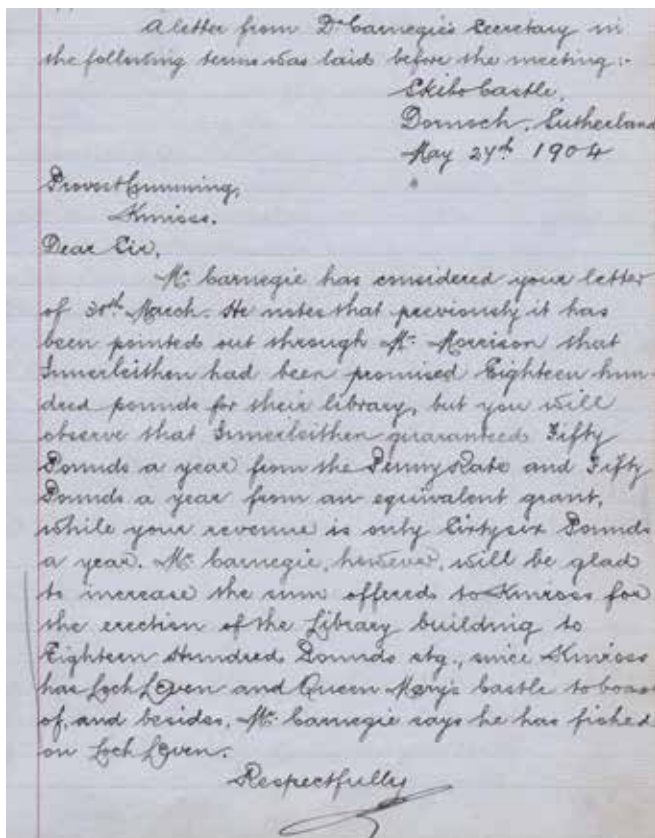 A letter from Dr Carnegie's Secretary in
the following terms was laid before the meeting:-
Skibo Castle,
Dornoch, Sutherland
May 24th 1904
Provost Cumming,
Kinross.
Dear Sir,
Mr. Carnegie has considered your letter
of 30th March. He notes that previously it has
been pointed out through Mr. Morrison that
Innerleithen had been promised Eighteen hun-
dred pounds for their library, but you will
observe that Innerleithen guaranteed Fifty
Pounds a year from the Penny Rate and Fifty
Pounds a year from an equivalent grant,
while your revenue is only Sixtysix Pounds
a year. Mr. Carnegie, however, will be glad
to increase the sum offered to Kinross for
the erection of the Library building to
Eighteen Hundred Pounds stg., since Kinross
has Loch Leven and Queen Mary's Castle to boast
of, and besides, Mr. Carnegie says he has fished
on Loch Leven.
Respectfully